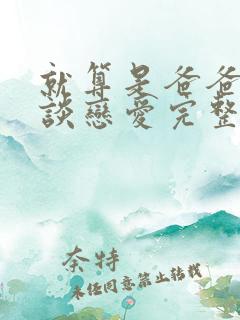 就算是爸爸
談戀愛完整
奈特
未经同意禁止转载